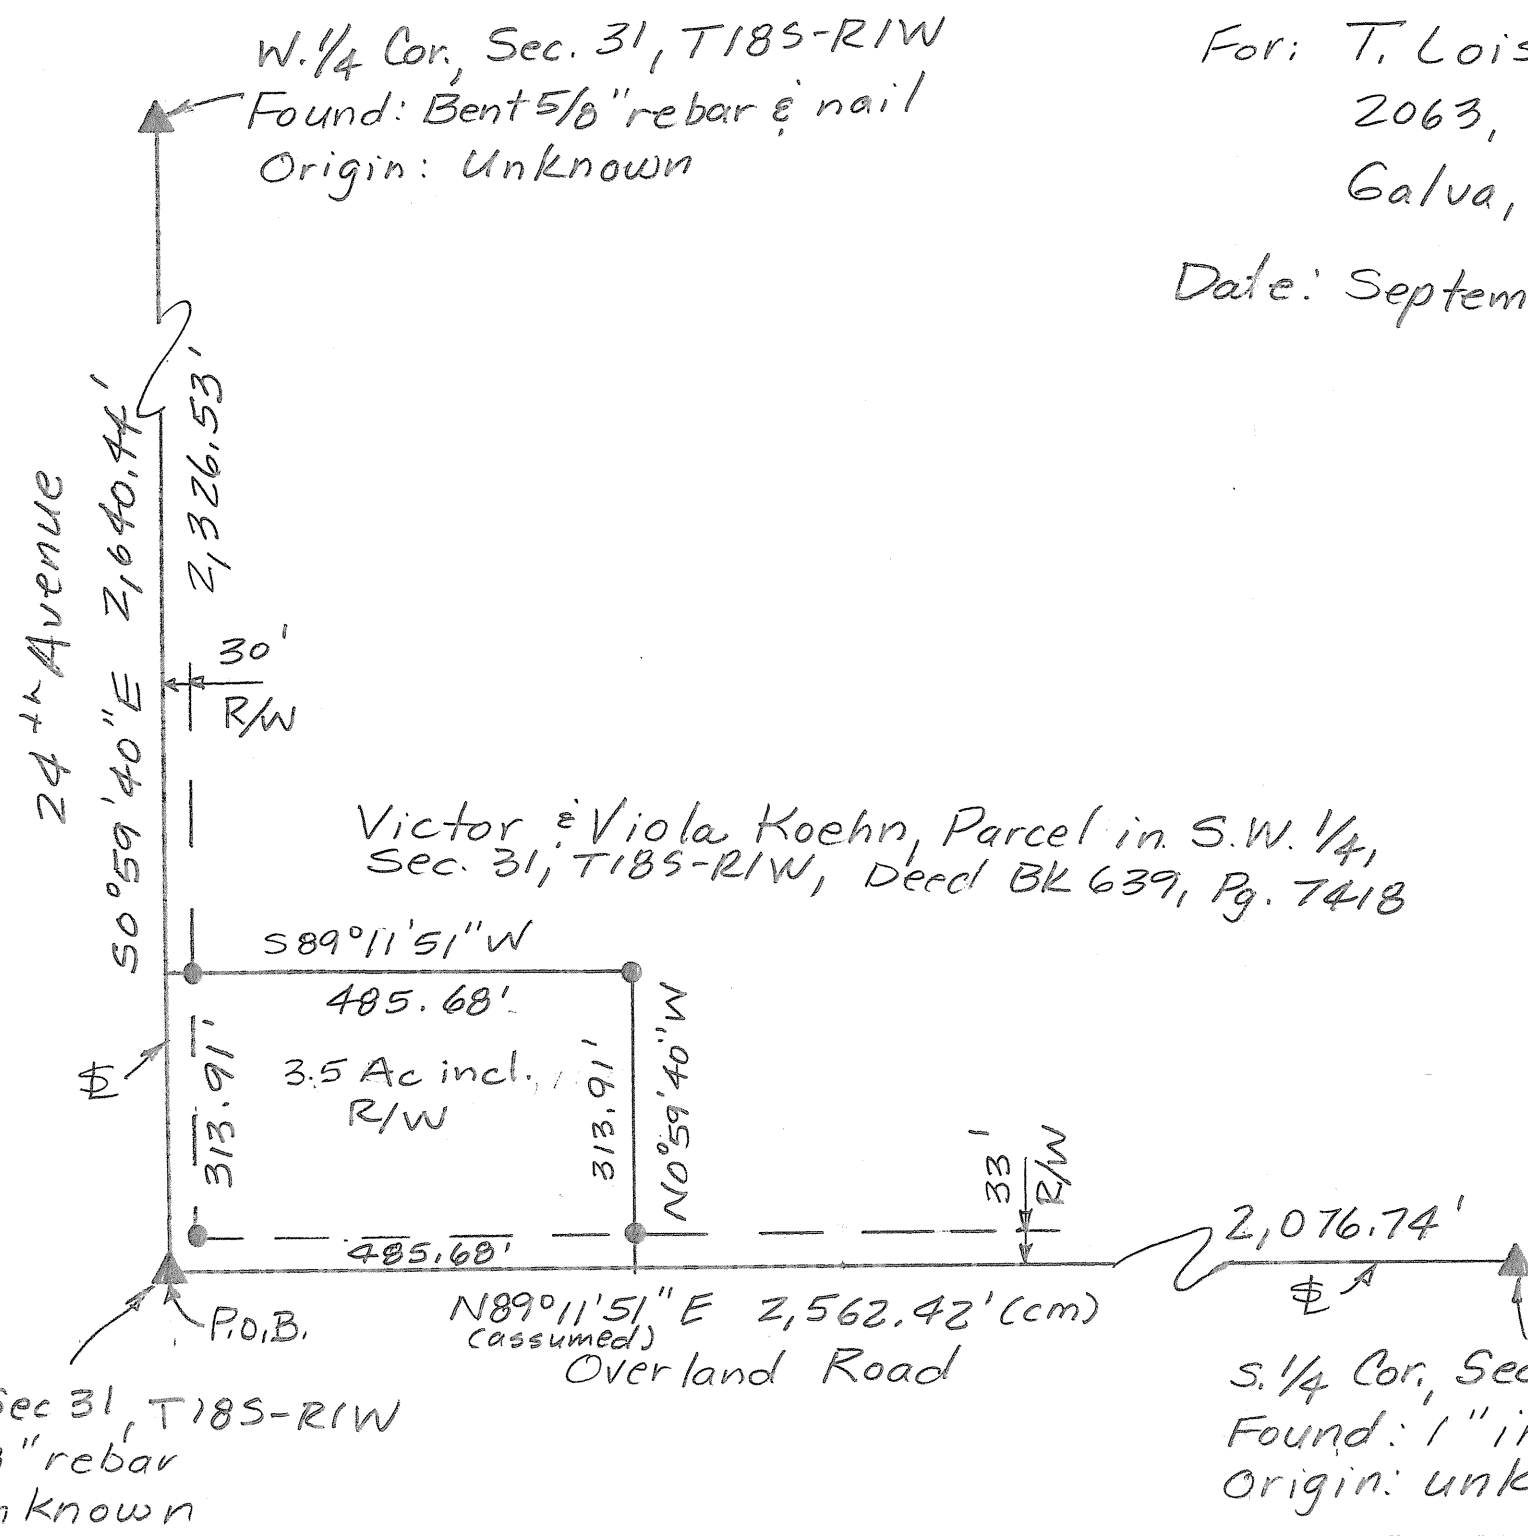 W. 1/4 Cor., Sec. 31, T18S-R1W
Found: Bent 5/8" rebar & nail
Origin: Unknown
For: T. Lois
2063,
Galva,
Date: Septem
24th Avenue
S0°59'40"E 2,640.44'
2,326.53'
30'
R/W
Victor & Viola Koehn, Parcel in S.W. 1/4,
Sec. 31, T18S-R1W, Deed BK 639, Pg. 7418
S89°11'51"W
485.68'
3.5 Ac incl.
R/W
313.91'
313.91'
N0°59'40"W
℄
33'
R/W
485.68'
2,076.74'
℄
P.O.B.
N89°11'51"E 2,562.42' (cm)
(assumed)
Overland Road
Sec 31, T18S-R1W
" rebar
nknown
S. 1/4 Cor., Sec
Found: 1" ir
Origin: unk